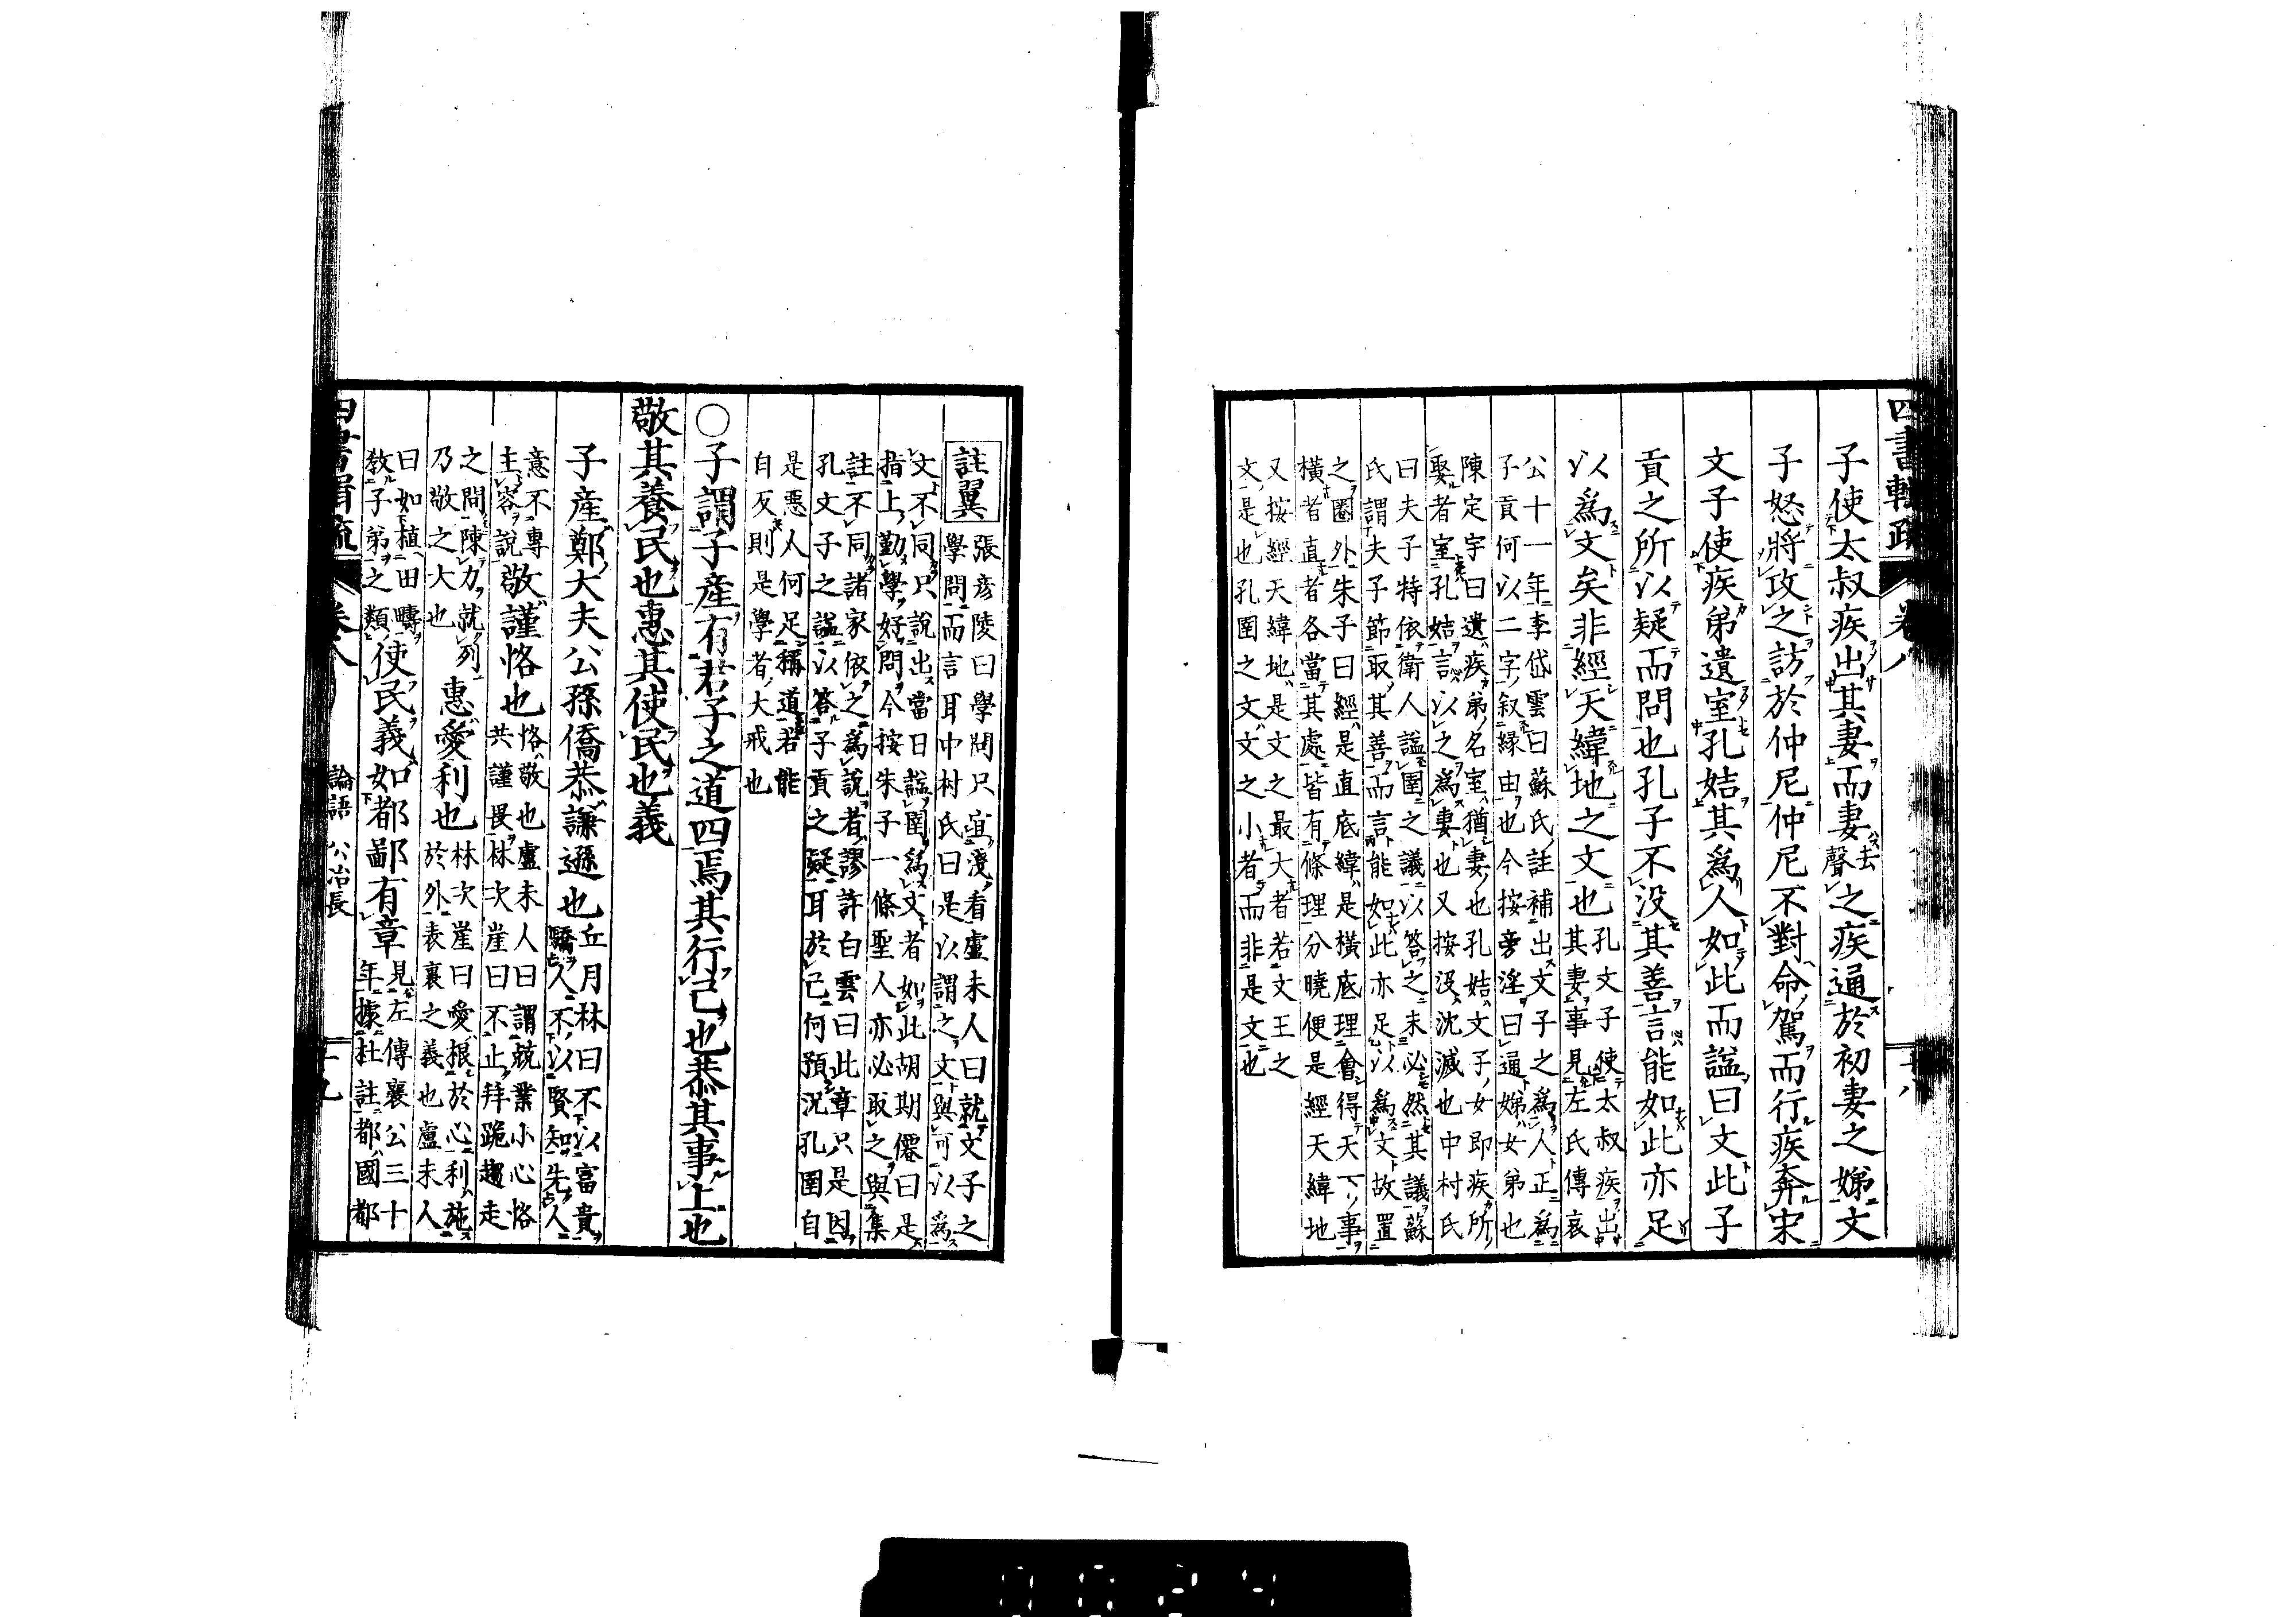 四書輯疏 卷八 二十八
子使太叔疾出其妻而妻去聲之疾通於初妻之娣文
子怒將攻之訪於仲尼仲尼不對命駕而行疾奔宋
文子使疾弟遺室孔姞其爲人如此而諡曰文此子
貢之所以疑而問也孔子不沒其善言能如此亦足
以爲文矣非經天緯地之文也
孔文子使太叔疾出
其妻事見左氏傳哀
公十一年李岱雲曰蘇氏註補出文子之爲人正爲
子貢何以二字叙緣由也今按旁淫曰通娣女弟也
陳定宇曰遺疾弟名室猶妻也孔姞文子女即疾所
娶者室孔姞言以之爲妻也又按沒沈滅也中村氏
曰夫子特依衛人諡圉之議以答之未必然其議蘇
氏謂夫子節取其善而言能如此亦足以爲文故置
之圈外朱子曰經是直底緯是橫底理會得天下事
橫者直者各當其處皆有條理分曉便是經天緯地
又按經天緯地是文之最大者若文王之
文是也孔圉之文文之小者而非是文也
註翼
張彥陵曰學問只宜淺看盧未人曰就文子之
學問而言耳中村氏曰是以謂之文與可以爲
文不同只說出當日諡圉爲文者如此胡期僊曰是
指上勤學好問今按朱子一條聖人亦必取之與集
註不同諸家依之爲說者謬許白雲曰此章只是因
孔文子之諡以答子貢之疑耳於己何預況孔圉自
是惡人何足稱道若能
自反則是學者大戒也
○子謂子產有君子之道四焉其行己也恭其事上也
敬其養民也惠其使民也義
子產鄭大夫公孫僑恭謙遜也
丘月林曰不以富貴
驕人不以賢知先人
意不專
主容說
敬謹恪也
恪敬也盧未人曰謂兢業小心恪
共謹畏林次崖曰不止拜跪趨走
之間陳力就列
乃敬之大也
惠愛利也
林次崖曰愛根於心利施
於外表裏之義也盧未人
曰如植田疇
教子弟之類
使民義如都鄙有章
見左傳襄公三十
年據杜註都國都
四書輯疏 卷八 論語 公冶長 二十九